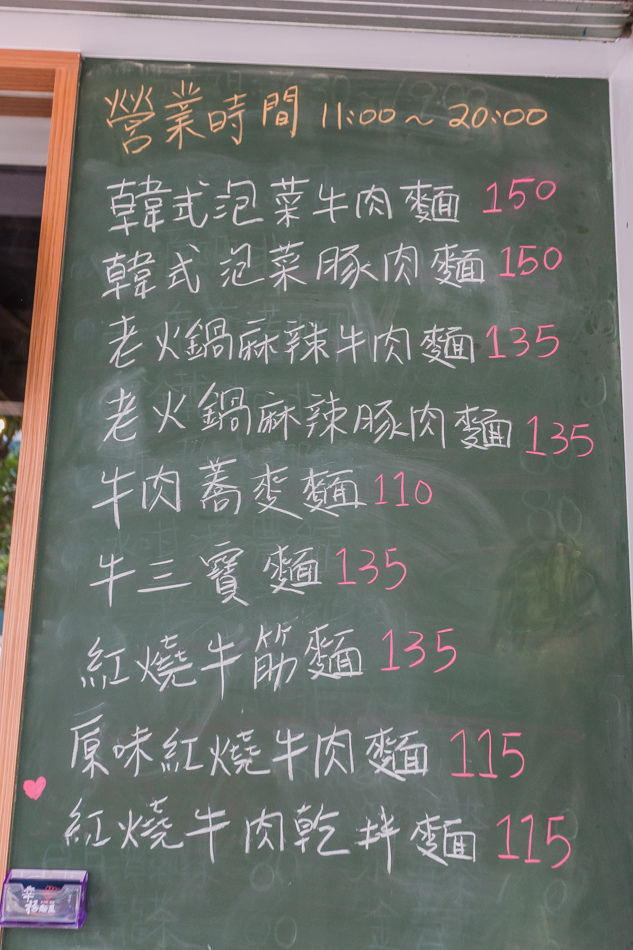 營業時間 11:00～20:00
韓式泡菜牛肉麵 150
韓式泡菜豚肉麵 150
老火鍋麻辣牛肉麵 135
老火鍋麻辣豚肉麵 135
牛肉蕎麥麵 110
牛三寶麵 135
紅燒牛筋麵 135
原味紅燒牛肉麵 115
紅燒牛肉乾拌麵 115